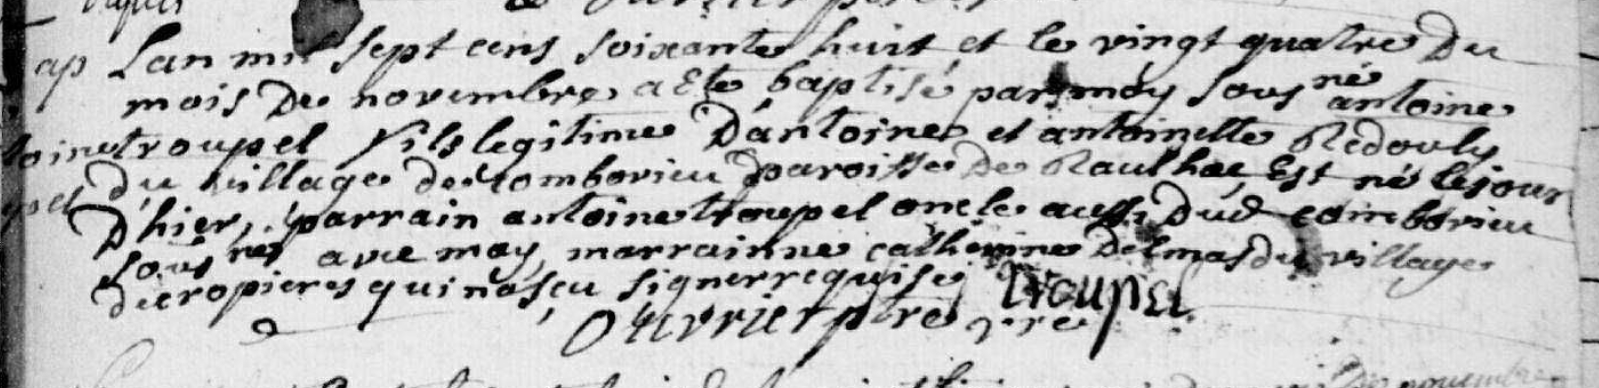 ap Lan mil sept cens soixante huit et le vingt quatre Du
mois De novembre a Ete baptisé par moy sous né antoine
toine troupel fils legitime D'antoine et antoinette Redouly
pel du village de comborieu paroisse De Raulhac Est né le jour
D'hier, parrain antoine troupel oncle aussi Dud comborieu
sous nés avec moy, marrainne catherine Delmas du village
de cropieres qui na sçu signer requise Troupel
Ouvrier ptre vre